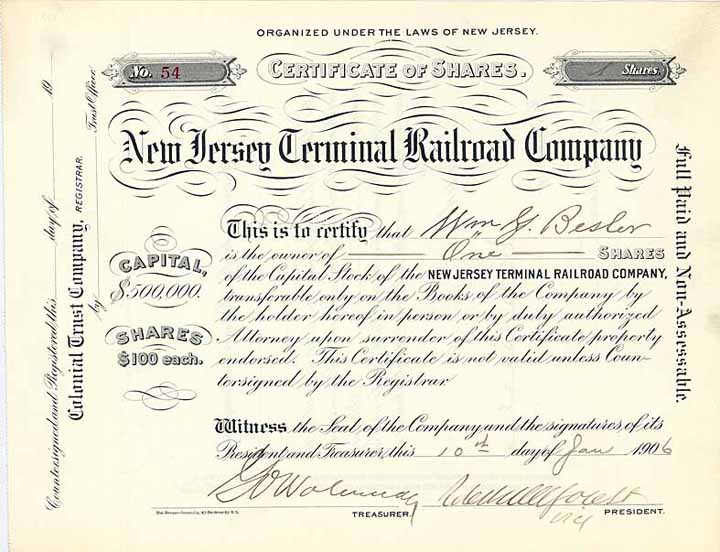 ORGANIZED UNDER THE LAWS OF NEW JERSEY.
No. 54
CERTIFICATE OF SHARES.
1 Shares.
New Jersey Terminal Railroad Company
This is to certify that Wm G. Besler
is the owner of One SHARES
of the Capital Stock of the NEW JERSEY TERMINAL RAILROAD COMPANY,
transferable only on the Books of the Company by
the holder hereof in person or by duly authorized
Attorney upon surrender of this Certificate properly
endorsed. This Certificate is not valid unless Coun-
tersigned by the Registrar
CAPITAL,
$500,000.
SHARES
$100 each.
Witness the Seal of the Company and the signatures of its
President and Treasurer, this 10th day of Jan 1906
TREASURER.
Vice
PRESIDENT.
Full Paid and Non-Assessable.
Countersigned and Registered this day of 19
Colonial Trust Company, REGISTRAR.
by Trust Officer